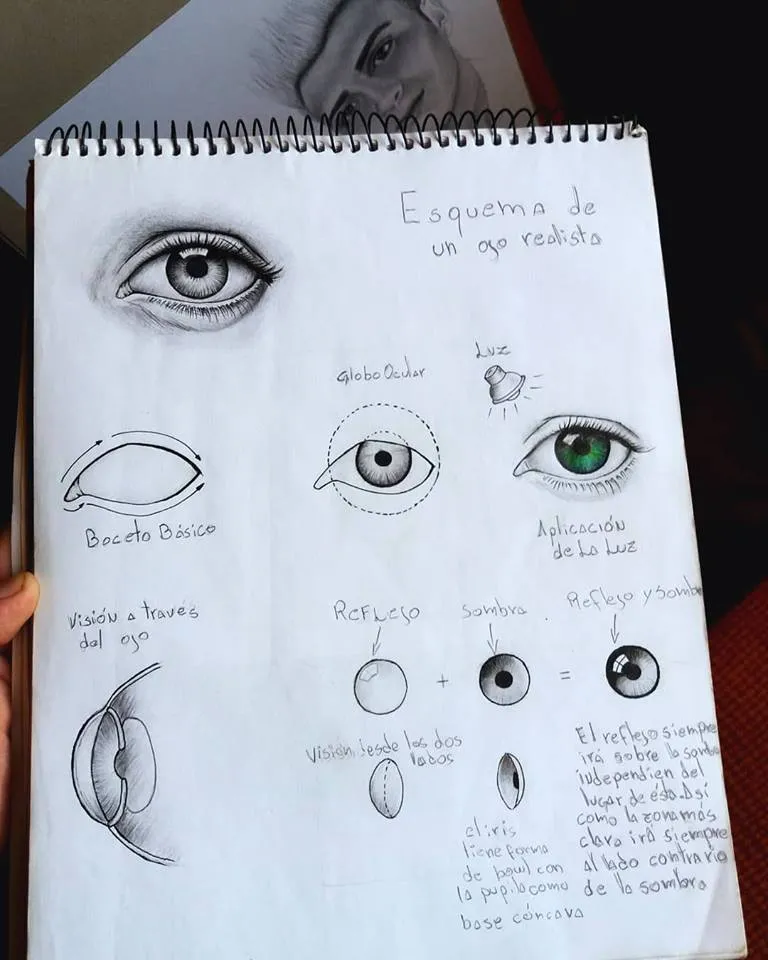 Esquema de
un ojo realista
Globo Ocular
Luz
Boceto Básico
Aplicación
de La Luz
Visión a través
del ojo
REFLEJO
Sombra
Reflejo y Somb
+
=
Visión desde los dos
lados
el iris
tiene forma
de bowl con
la pupila como
base cóncava
El reflejo siempre
irá sobre la somb
independien del
lugar de ésta. Así
como la zona más
clara irá siempre
al lado contrario
de la sombra